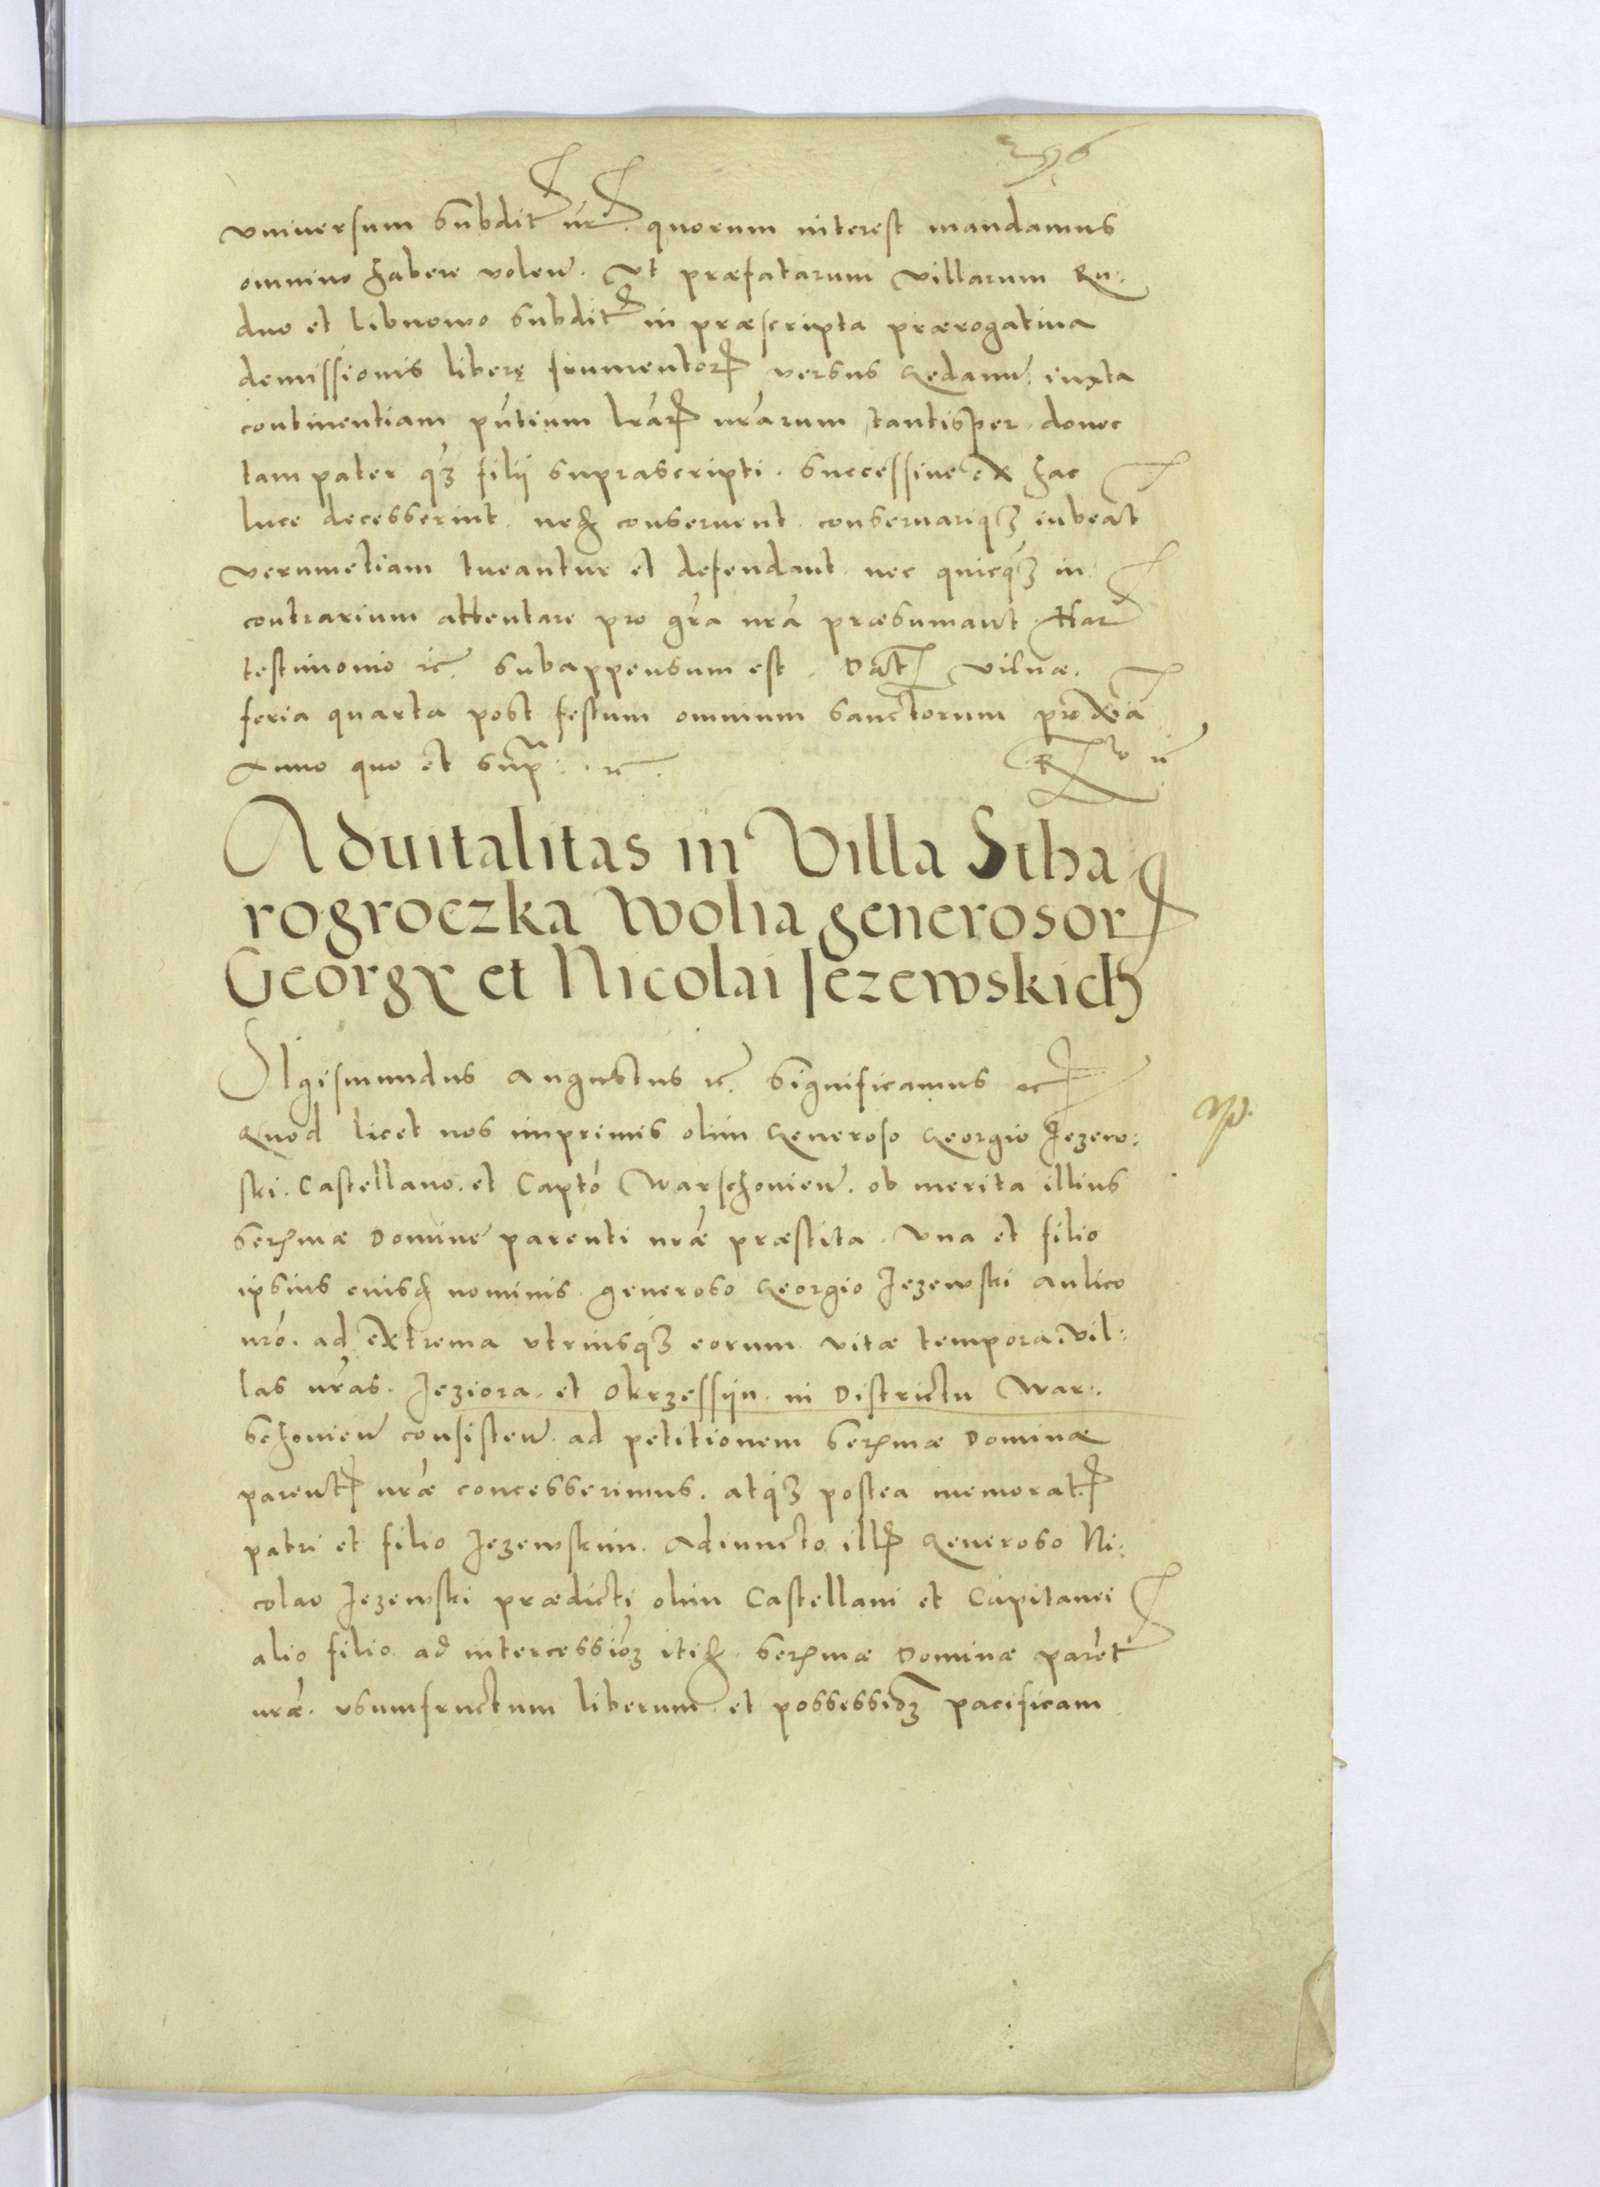 296
vniuersum Subdit nr quorum interest mandamus
omnino habere volen. Vt præfatarum villarum Ru:
dno et libnowo Subdit in præscripta prærogatiua
demissionis liberę frumentor versus Gedanum iuxta
continentiam pntium lrar nrarum tantisper donec
tam pater qz filii suprascripti successiue ex hac
luce decesserint. neq conseruent conseruariqz iubeat
verumetiam tueantur et defendant nec quicqz in
contrarium attentare pro gra nra præsumant. Har
testimonio ic. subappensum est. Dat Vilnæ.
feria quarta post festum omnium sanctorum proxia
Anno quo et supra ic
Aduitalitas in Villa Stha
rogroczka Wolia generosor
Georgy et Nicolai Jezewskich
Sigismundus Augustus ic. Significamus ec
Quod licet nos imprimis olim Generoso Georgio Jezew:
ski. Castellano. et Capto Warschouien. ob merita illius
Serme Domine parenti nræ præstita. Vna et filio
ipsius eiusq nominis generoso Georgio Jezewski aulico
nro. ad extrema vtriusqz eorum vitæ tempora. vil:
las nras. Jeziora et Okrzessyn in Districtu War:
schouien consisten. ad petitionem Sermæ Dominæ
parent nræ concesserimus. atqz postea memorat
patri et filio Jezewskim. Adiuncto ill Generoso Ni:
colao Jezewski prædicti olim Castellani et Capitanei
alio filio ad intercessioz itiq. Sermæ Dominæ parent
nræ. vsumfructum liberum et possessioz pacificam